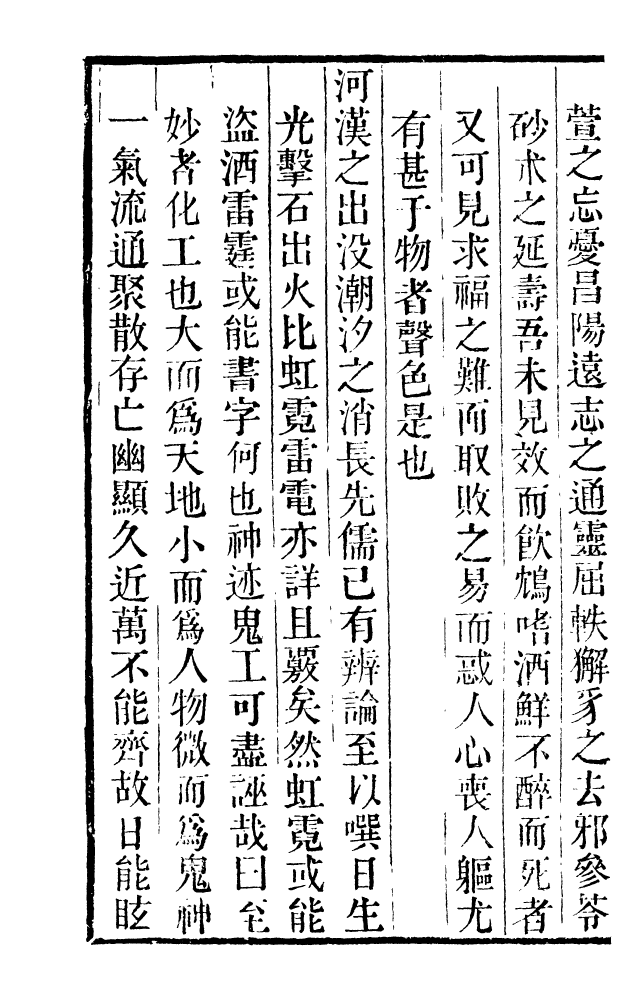 萱之忘憂昌陽遠志之通靈屈軼獬豸之去邪參苓
砂朮之延壽吾未見效而飮鴆嗜酒鮮不醉而死者
又可見求福之難而取敗之易而惑人心喪人軀尤
有甚于物者聲色是也
河漢之出没潮汐之消長先儒已有辨論至以噀日生
光擊石出火比虹霓雷電亦詳且覈矣然虹霓或能
盜酒雷霆或能書字何也神迹鬼工可盡誣哉曰至
妙者化工也大而爲天地小而爲人物微而爲鬼神
一氣流通聚散存亡幽顯久近萬不能齊故日能眩